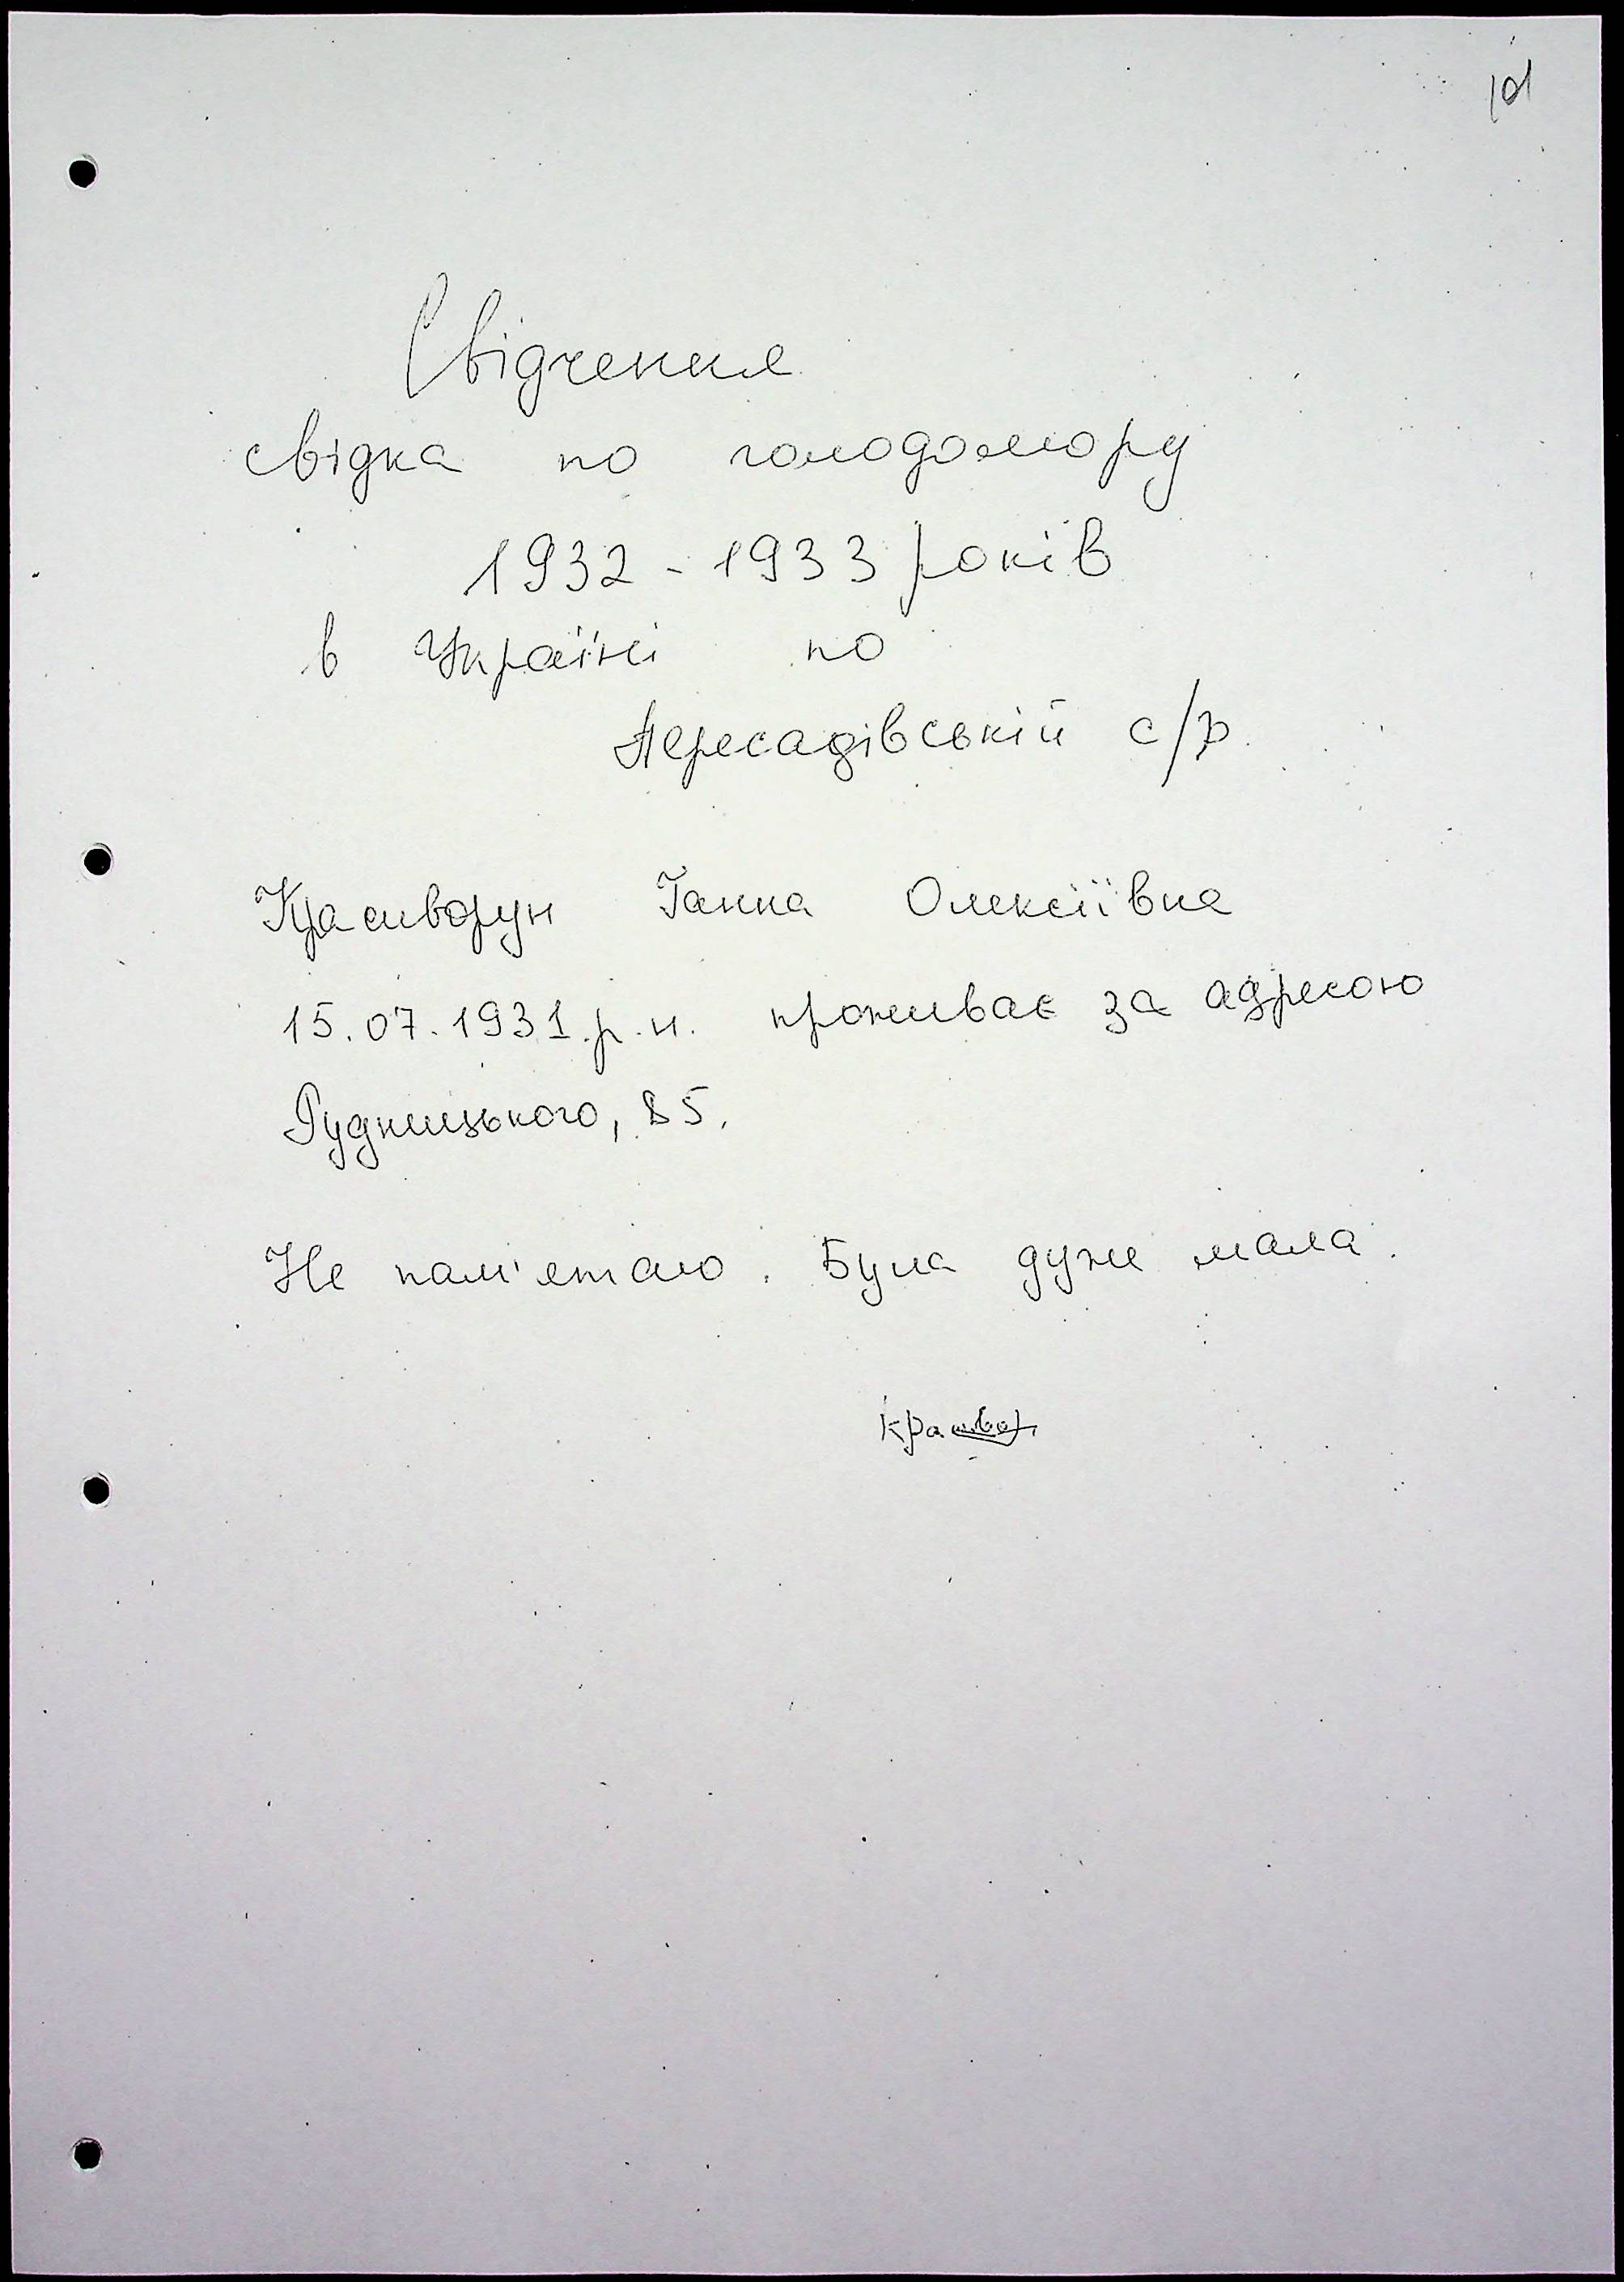 101
Свідчення
свідка по голодомору
1932 - 1933 років
в Україні по
Пересадівській с/р.
Красиворун Ганна Олексіївна
15.07.1931 р.н. проживає за адресою
Рудницького, 85.
Не пам'ятаю. Була дуже мала.